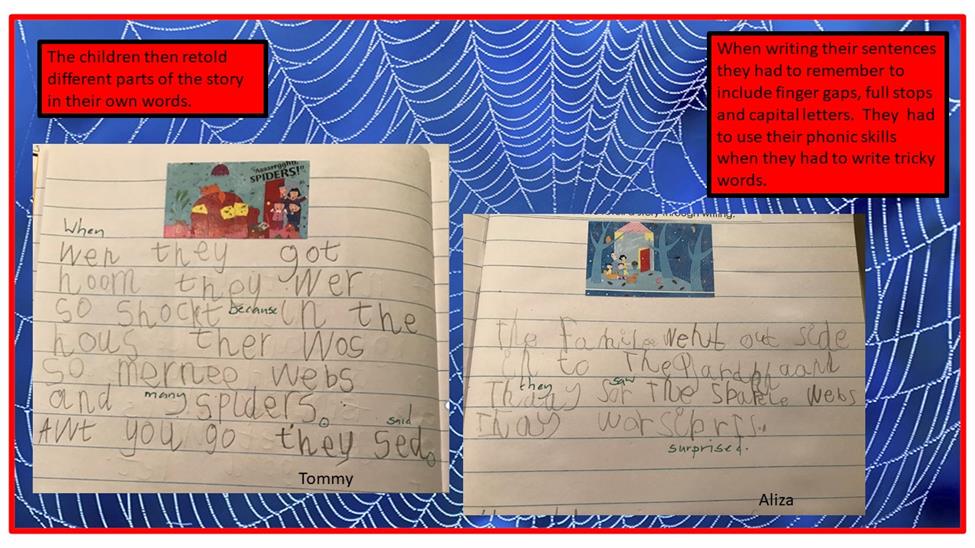 The children then retold
different parts of the story
in their own words.
When writing their sentences
they had to remember to
include finger gaps, full stops
and capital letters. They had
to use their phonic skills
when they had to write tricky
words.
"Aaaarrgghh,
SPIDERS!"
When
wen they got
hoom they wer
so shockt because in the
hous ther wos
so mernee webs
and many spiders.
AWt you go they sed.
said
Tommy
story through writing.
The Familee went out side
in to The and
they saw
Thay sor The webs
Thay wor
surprised.
Aliza